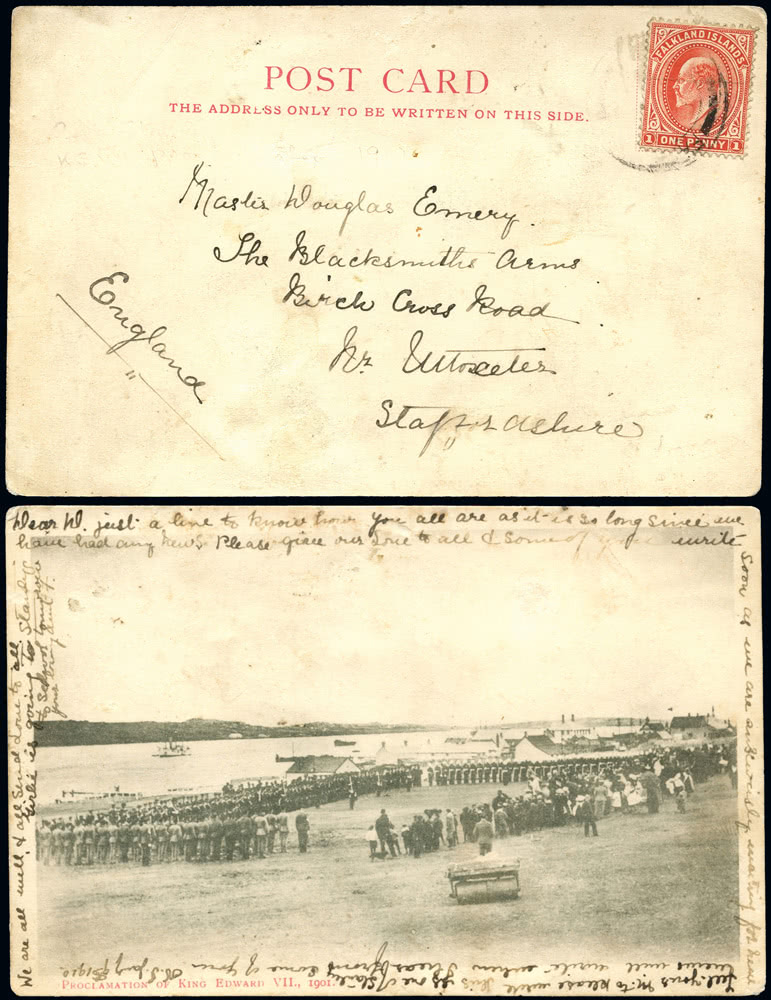 POST CARD
THE ADDRESS ONLY TO BE WRITTEN ON THIS SIDE.
FALKLAND ISLANDS
1 ONE PENNY 1
Master Douglas Emery.
The Blacksmiths Arms
Birch Cross Road
Nr Uttoxeter
Staffordshire
England
Dear D. just a line to know how you all are as it is so long since we
have had any news Please give our Love to all & some of you write
soon as we are anxiously waiting for
Tell yours M. to please write
news will write when I hear from some of you
This is one of Stanley
1910
We are all well, & all send Love to all
Girlie is going to Standiff
to School
your loving Aunt
PROCLAMATION OF KING EDWARD VII., 1901.